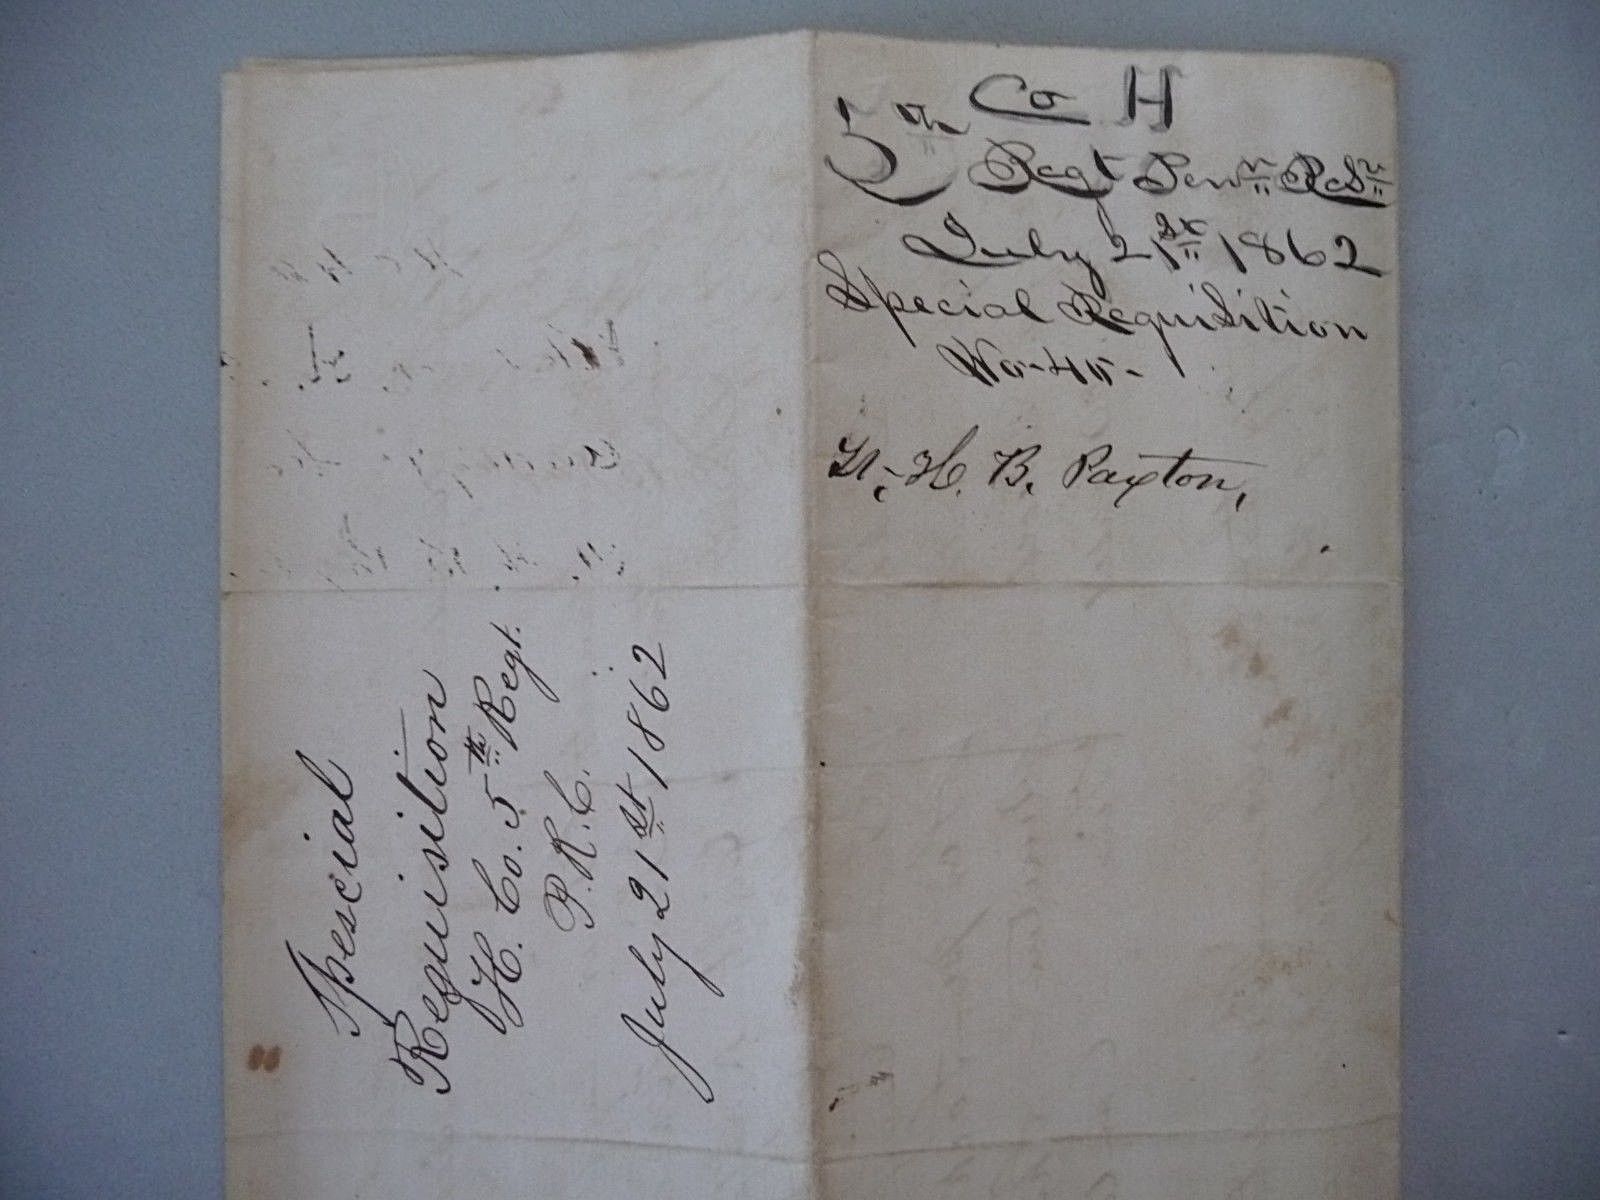 Special
Requisition
H. Co. 5th Regt.
P. R. C.
July 21st 1862
Co H
5th Regt Penn Resv
July 21st 1862
Special Requisition
No-40-
Lt. H. B. Paxton,